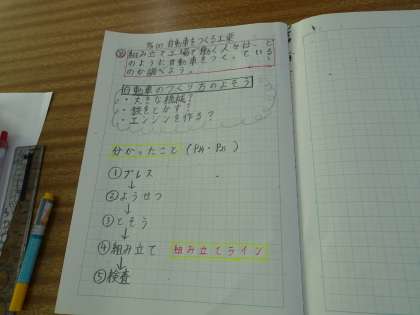 自動車をつくる工業
組み立て工場で働く人々は、ど
のように自動車をつくっている
のか調べよう。
自動車のつくり方のよそう
・大きな機械?
・鉄をとかす?
・エンジンを作る?
分かったこと
①プレス
↓
②ようせつ
↓
③とそう
↓
④組み立て 組み立てライン
↓
⑤検査